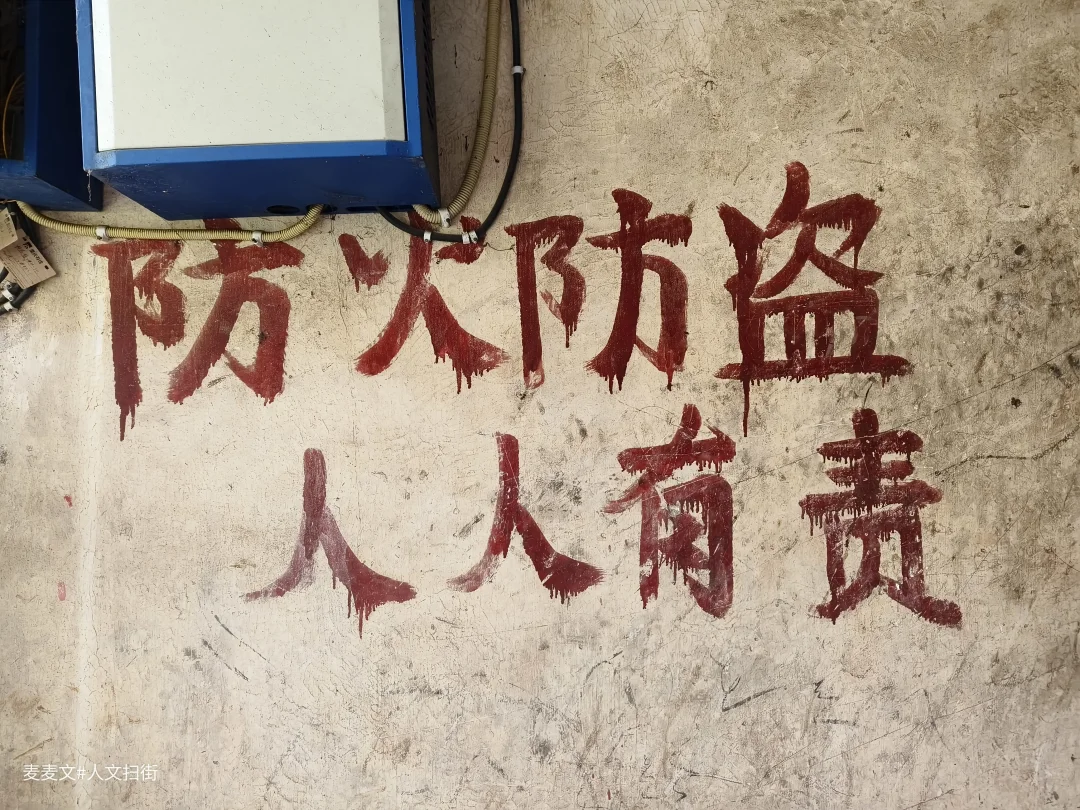 防火防盗
人人有责
麦麦文#人文扫街